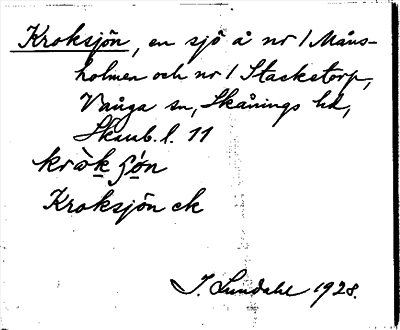 Kroksjön, en sjö å nr 1 Måns-
holmen och nr 1 Stackstorp,
Vånga sn, Skånings hd,
Skarab. l. 11
Kroksjön ck
I. Lundahl 1928.